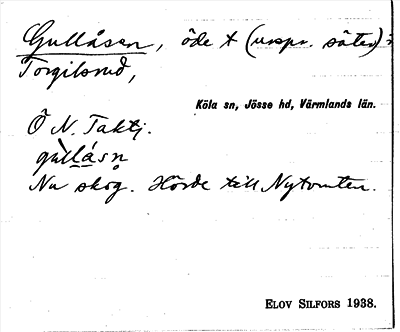 Gullåsen, öde t (urspr. säter) i
Torgilsrud,
Köla sn, Jösse hd, Värmlands län.
Ö N. Taktj.
gulläsn
Nu skog. Hörde till Nytomten.
ELOV SILFORS 1938.